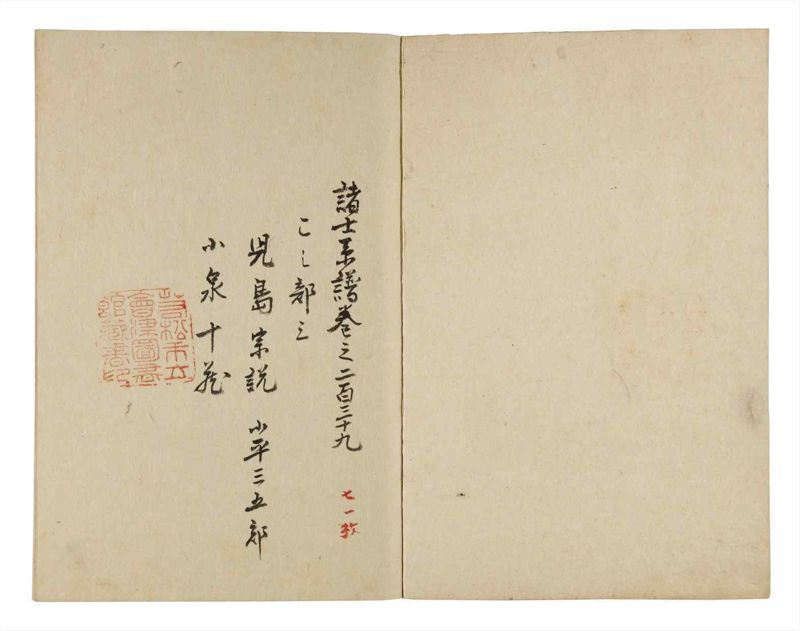 諸士系譜巻之二百三十九
こ之部三
児島宗説　小平三五郎
小泉十蔵
七一枚
若松市立
會津圖書
館藏書印